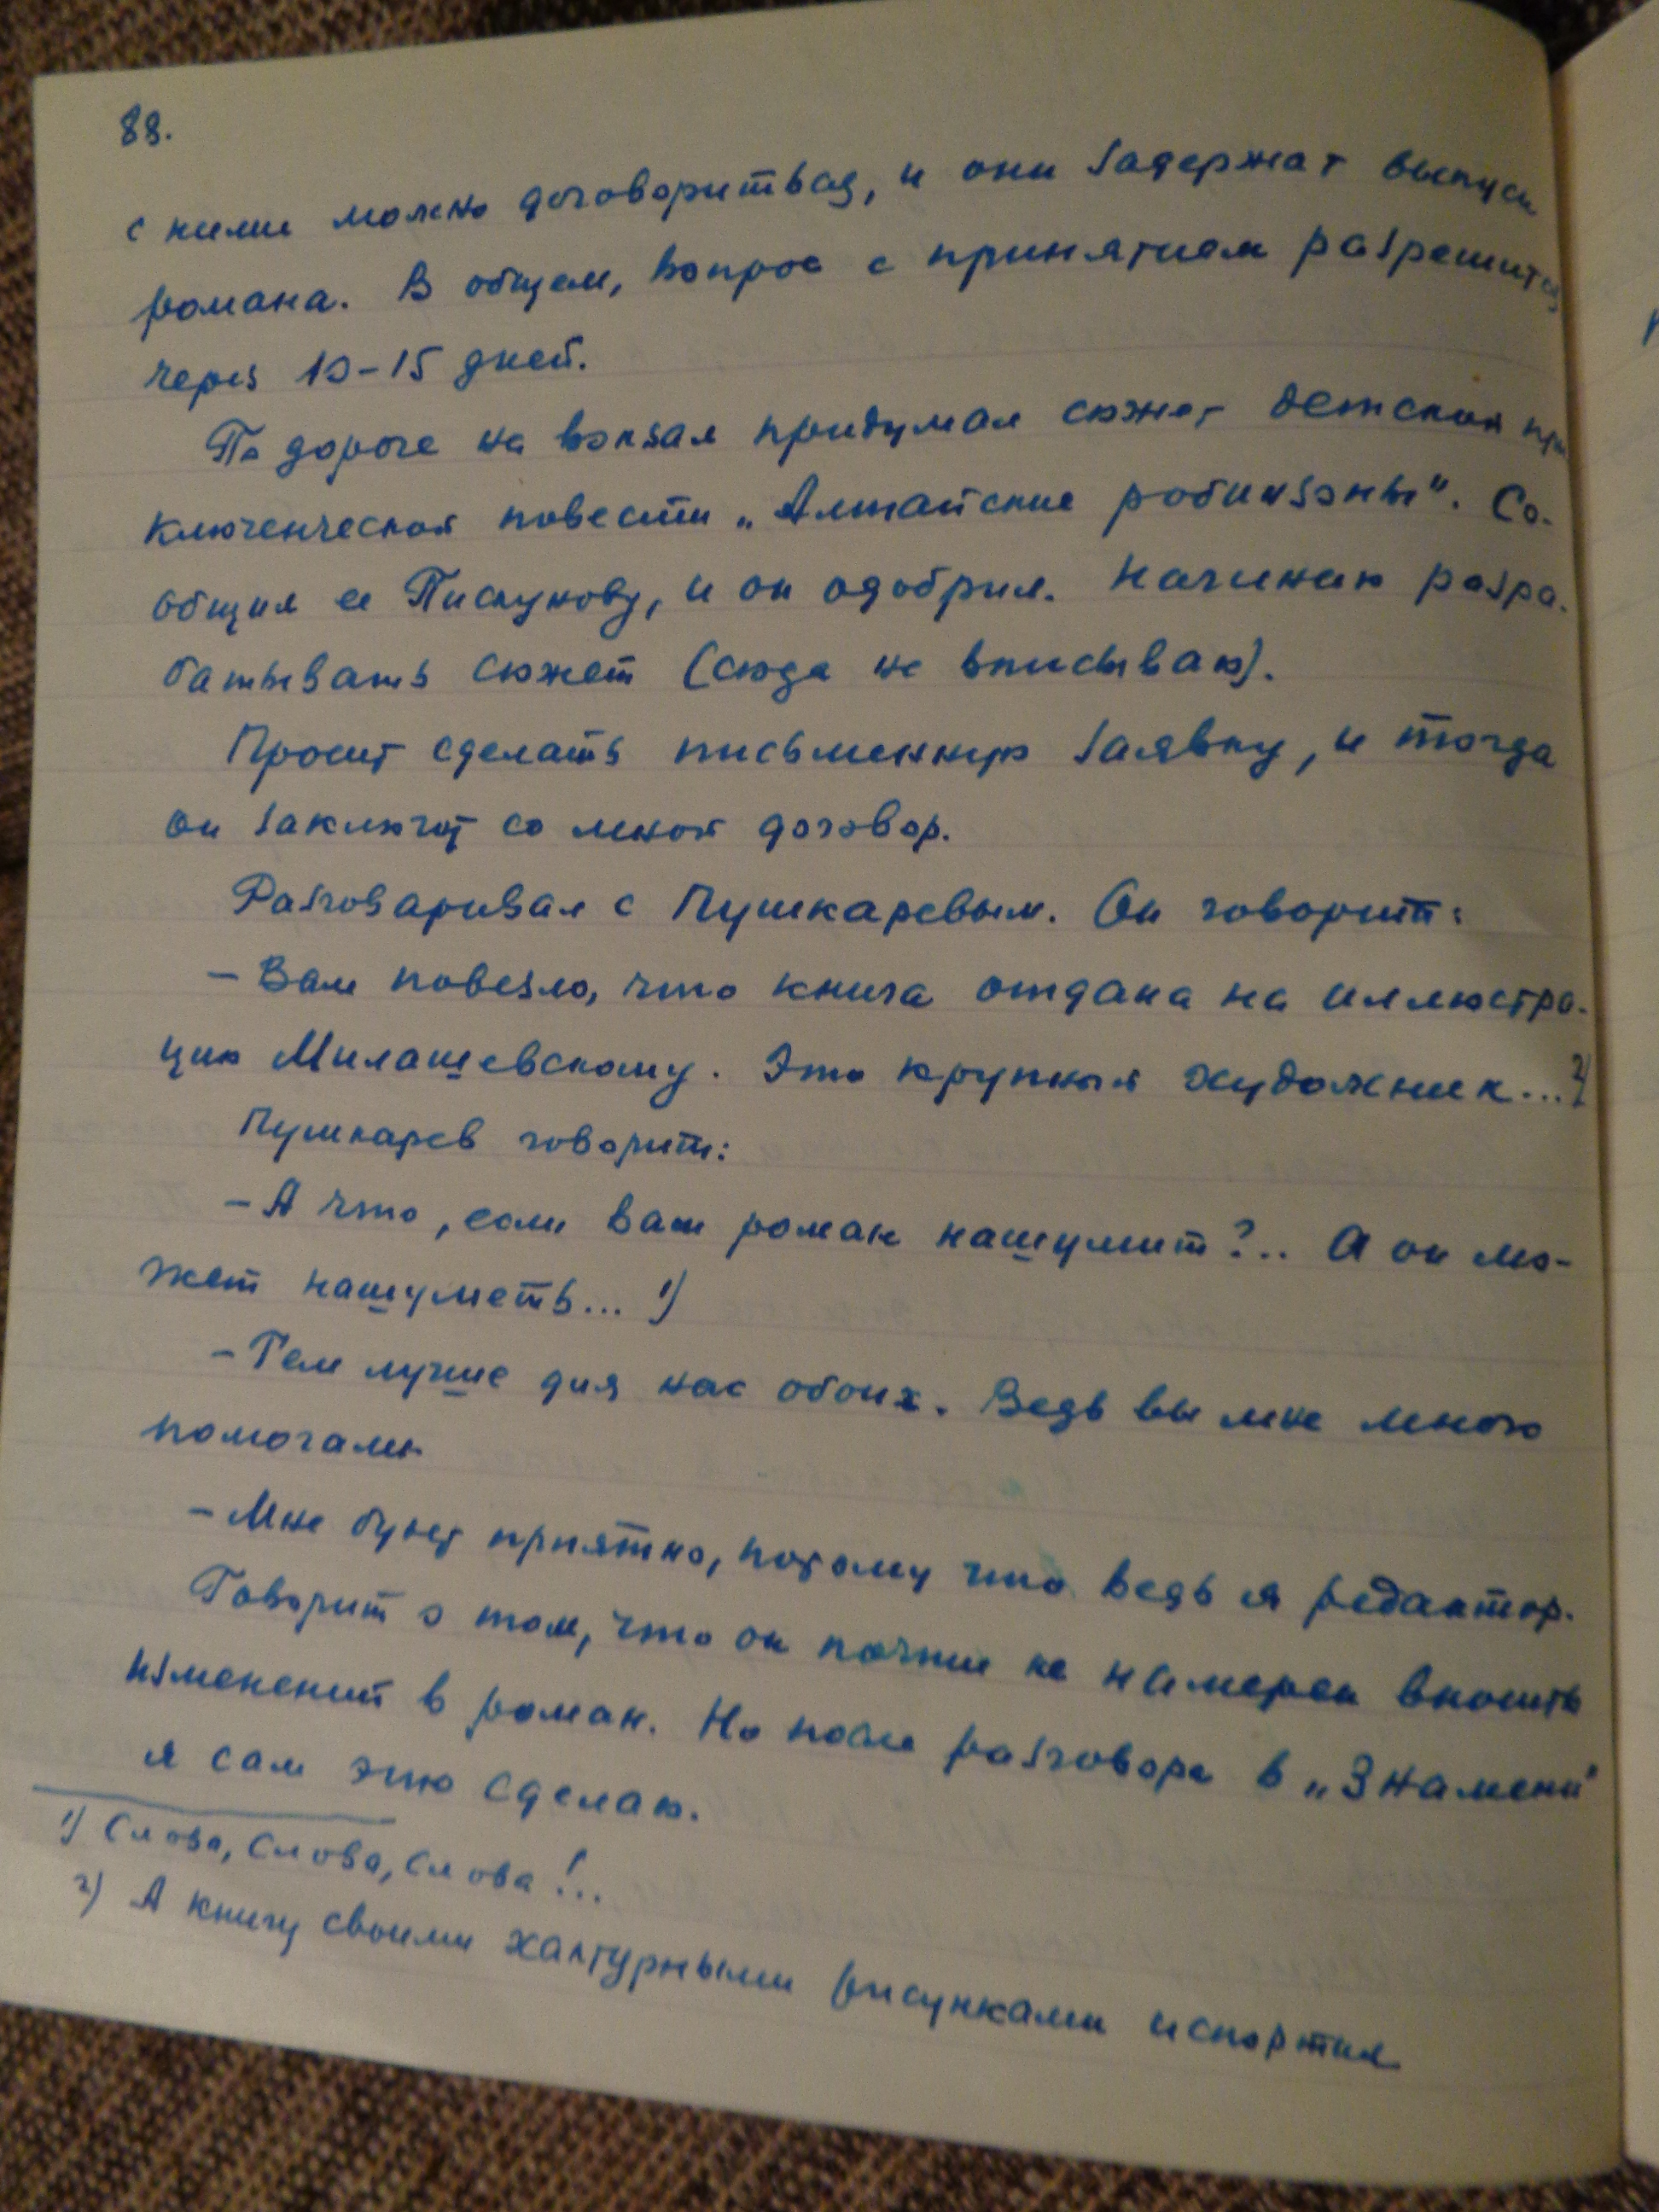 88.
с ними можно договориться, и они задержат выпуск
романа. В общем, вопрос с принятием разрешится
через 10-15 дней.
По дороге на вокзал придумал сюжет детской при
ключенческой повести „Алтайские робинзоны". Со-
общил ее Пискунову, и он одобрил. Начинаю разра-
батывать сюжет (сюда не вписываю).
Просит сделать письменную заявку, и тогда
он заключит со мной договор.
Разговаривал с Пушкаревым. Он говорит:
– Вам повезло, что книга отдана на иллюстра-
цию Милашевскому. Это крупный художник... 2)
Пушкарев говорит:
– А что, если ваш роман нашумит?.. А он мо-
жет нашуметь... 1)
– Тем лучше для нас обоих. Ведь вы мне много
помогали.
– Мне будет приятно, потому что ведь я редактор.
Говорит о том, что он почти не намерен вносить
изменений в роман. Но после разговора в „Знамени"
я сам это сделаю.
1) Слова, слова, слова!..
2) А книгу своими халтурными рисунками испортил